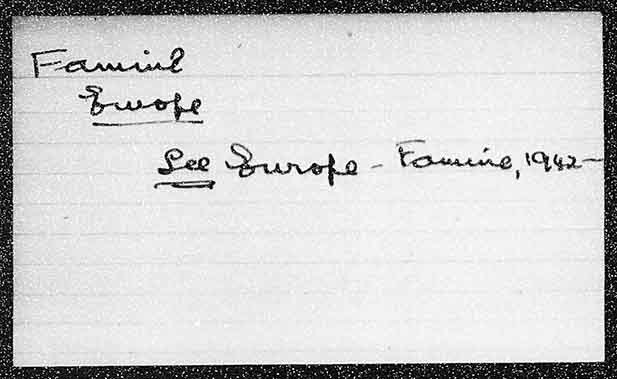 Famine
Europe
See Europe - Famine, 1942-